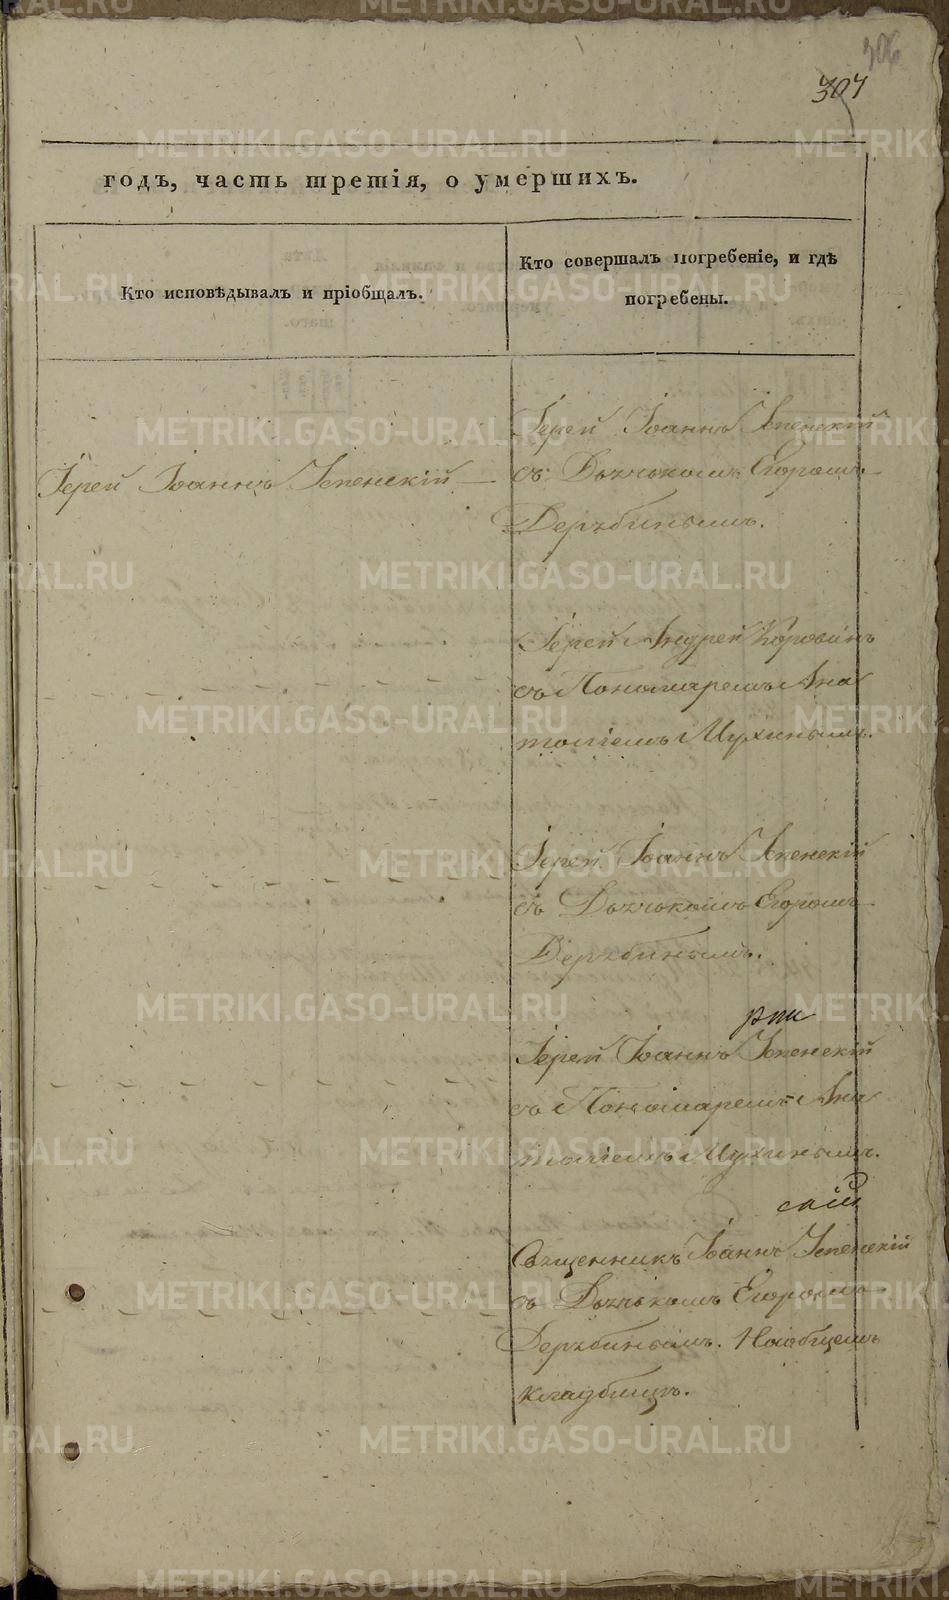 306
307
годъ, часть третія, о умершихъ.
Кто исповѣдывалъ и пріобщалъ.
Кто совершалъ погребеніе, и гдѣ
погребены.
Іерей Іоаннъ Успенскій
Іерей Іоаннъ Успенскій
съ Дьячькомъ Егоромъ
Дерябинымъ.
Іерей Андрей Коровинъ
съ Пономаремъ Ана
толіемъ Мухинымъ.
Іерей Іоаннъ Успенскій
съ Дьячькомъ Егоромъ
Дерябинымъ.
Іерей Іоаннъ Успенскій
съ Пономаремъ Ана
толіемъ Мухинымъ.
Священникъ Іоаннъ Успенскій
съ Дьячькомъ Егоромъ
Дерябинымъ. На общемъ
кладбищѣ.
METRIKI.GASO-URAL.RU